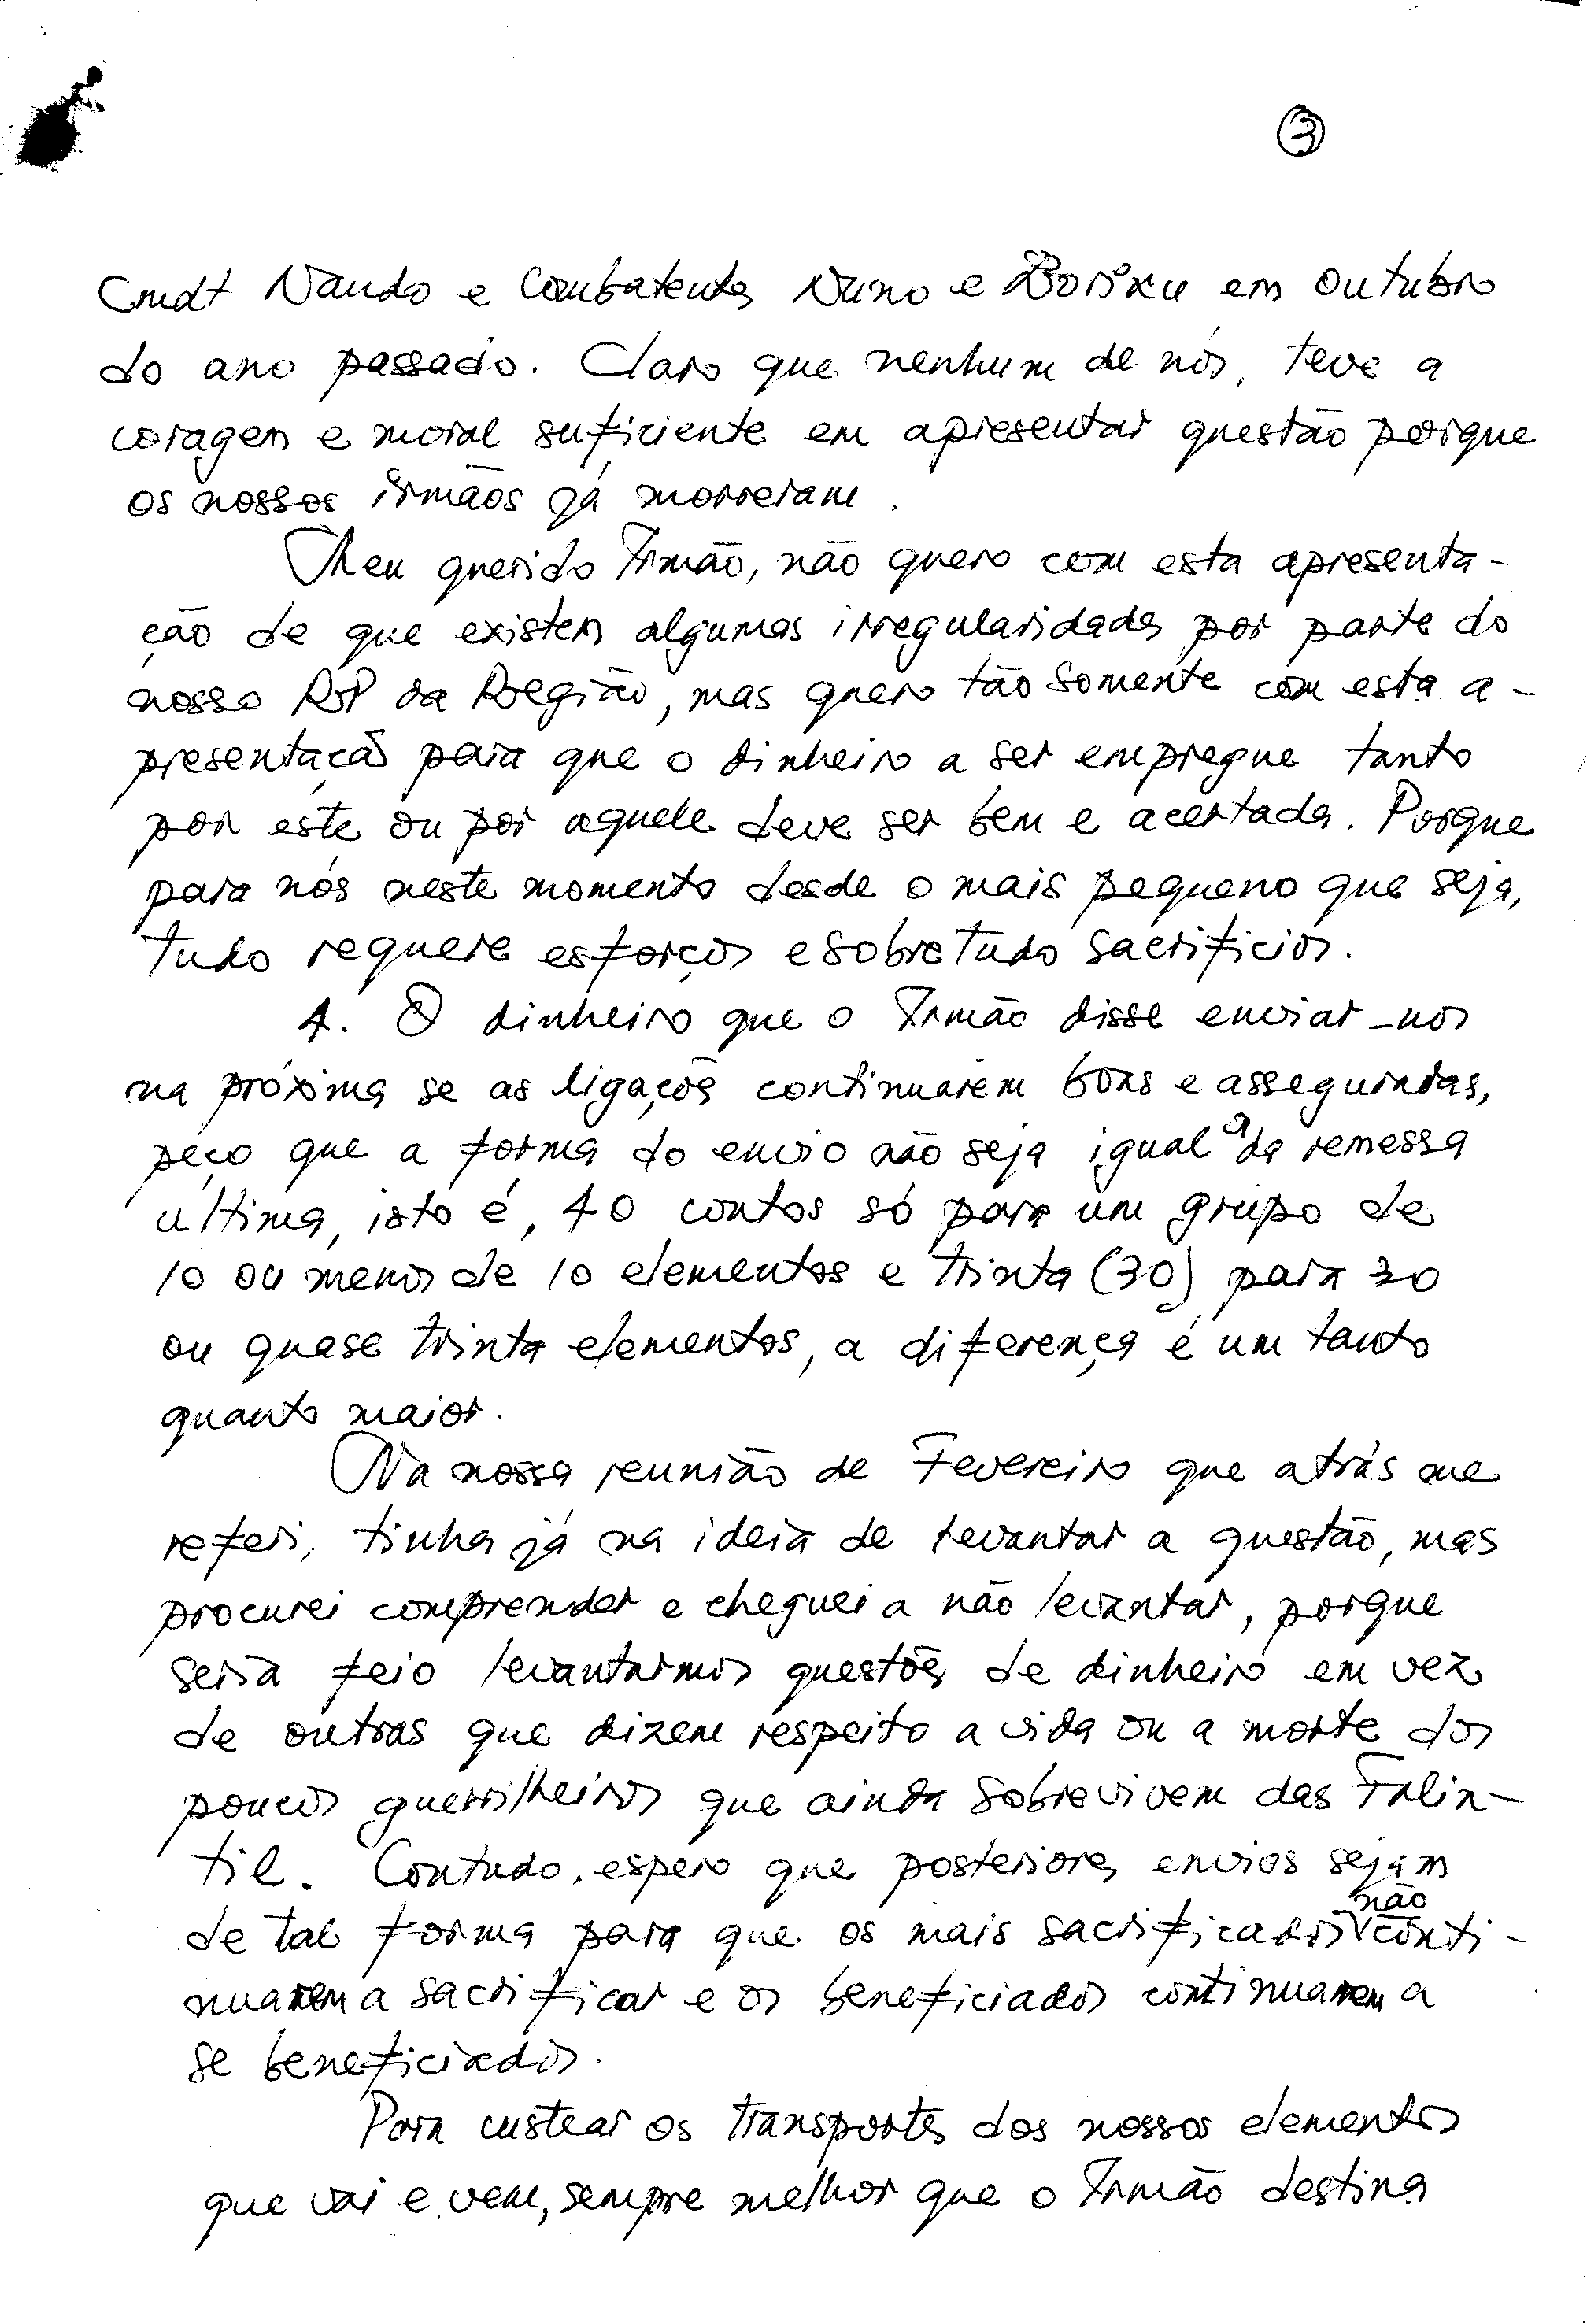 3
Cmdt Nando e Combatentes Nuno e Borixu em Outubro
do ano passado. Claro que nenhum de nós, teve a
coragem e moral suficiente em apresentar questão porque
os nossos irmãos já morreram.
Meu querido Irmão, não quero com esta apresenta-
ção de que existem algumas irregularidades por parte do
nosso RP da Região, mas quero tão somente com esta a-
presentação para que o dinheiro a ser empregue tanto
por este ou por aquele deve ser bem e acertada. Porque
para nós neste momento desde o mais pequeno que seja,
tudo requere esforços e sobretudo sacrificios.
4. O dinheiro que o Irmão disse enviar-nos
na próxima se as ligações continuarem bons e asseguradas,
peço que a forma do envio não seja igual a da remessa
ultima, isto é, 40 contos só para um grupo de
10 ou menos de 10 elementos e trinta (30) para 30
ou quase trinta elementos, a diferença é um tanto
quanto maior.
Na nossa reunião de Fevereiro que atrás me
referi, tinha já na ideia de levantar a questão, mas
procurei comprender e cheguei a não levantar, porque
seria feio levantarmos questões de dinheiro em vez
de outras que dizem respeito a vida ou a morte dos
poucos guerrilheiros que ainda sobrevivem das Falin-
til. Contudo, espero que posteriores envios sejam
de tal forma para que os mais sacrificados não conti-
nuarem a sacrificar e os beneficiados continuarem a
se beneficiados.
Para custear os transportes dos nossos elementos
que vai e vem, sempre melhor que o Irmão destina